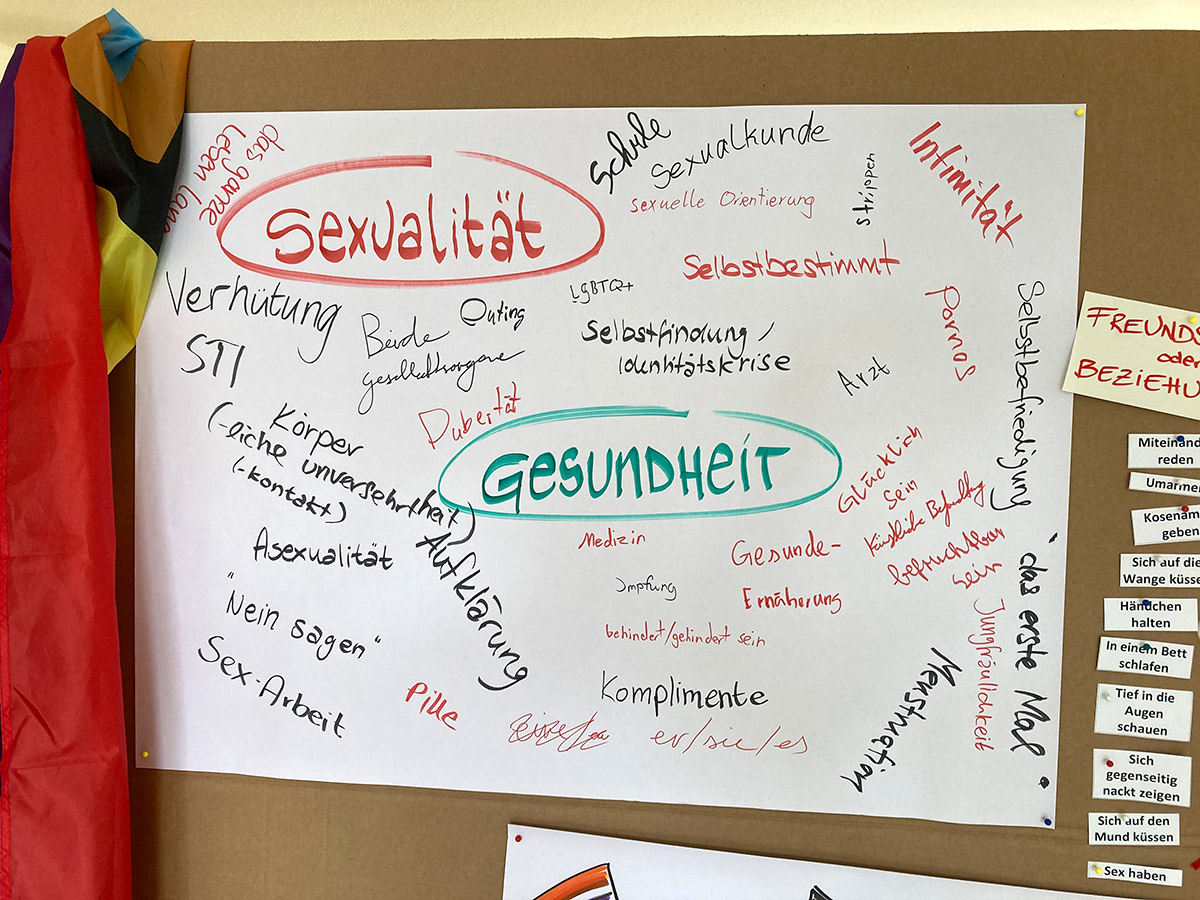 das ganze
Leben lang
Sexualität
Schule
Sexualkunde
sexuelle Orientierung
strippen
Intimität
Selbstbestimmt
Verhütung
STI
Beide
Outing
LGBTQ+
Selbstfindung/
Identitätskrise
Arzt
Pornos
Selbstbefriedigung
Pubertät
Körper
(-liche unversehrtheit)
(-kontakt)
Gesundheit
Glücklich
Sein
Künstliche Befruchtung
befruchtbar
sein
Asexualität
Aufklärung
Medizin
Gesunde-
Ernäherung
Impfung
behindert/gehindert sein
"Nein sagen"
Sex-Arbeit
Pille
Komplimente
er/sie/es
Menstruation
Jungfräulichkeit
"das erste Mal"
FREUNDS
oder
BEZIEHU
Miteinand
reden
Umarmen
Kosenam
geben
Sich auf die
Wange küsse
Händchen
halten
In einem Bett
schlafen
Tief in die
Augen
schauen
Sich
gegenseitig
nackt zeigen
Sich auf den
Mund küssen
Sex haben